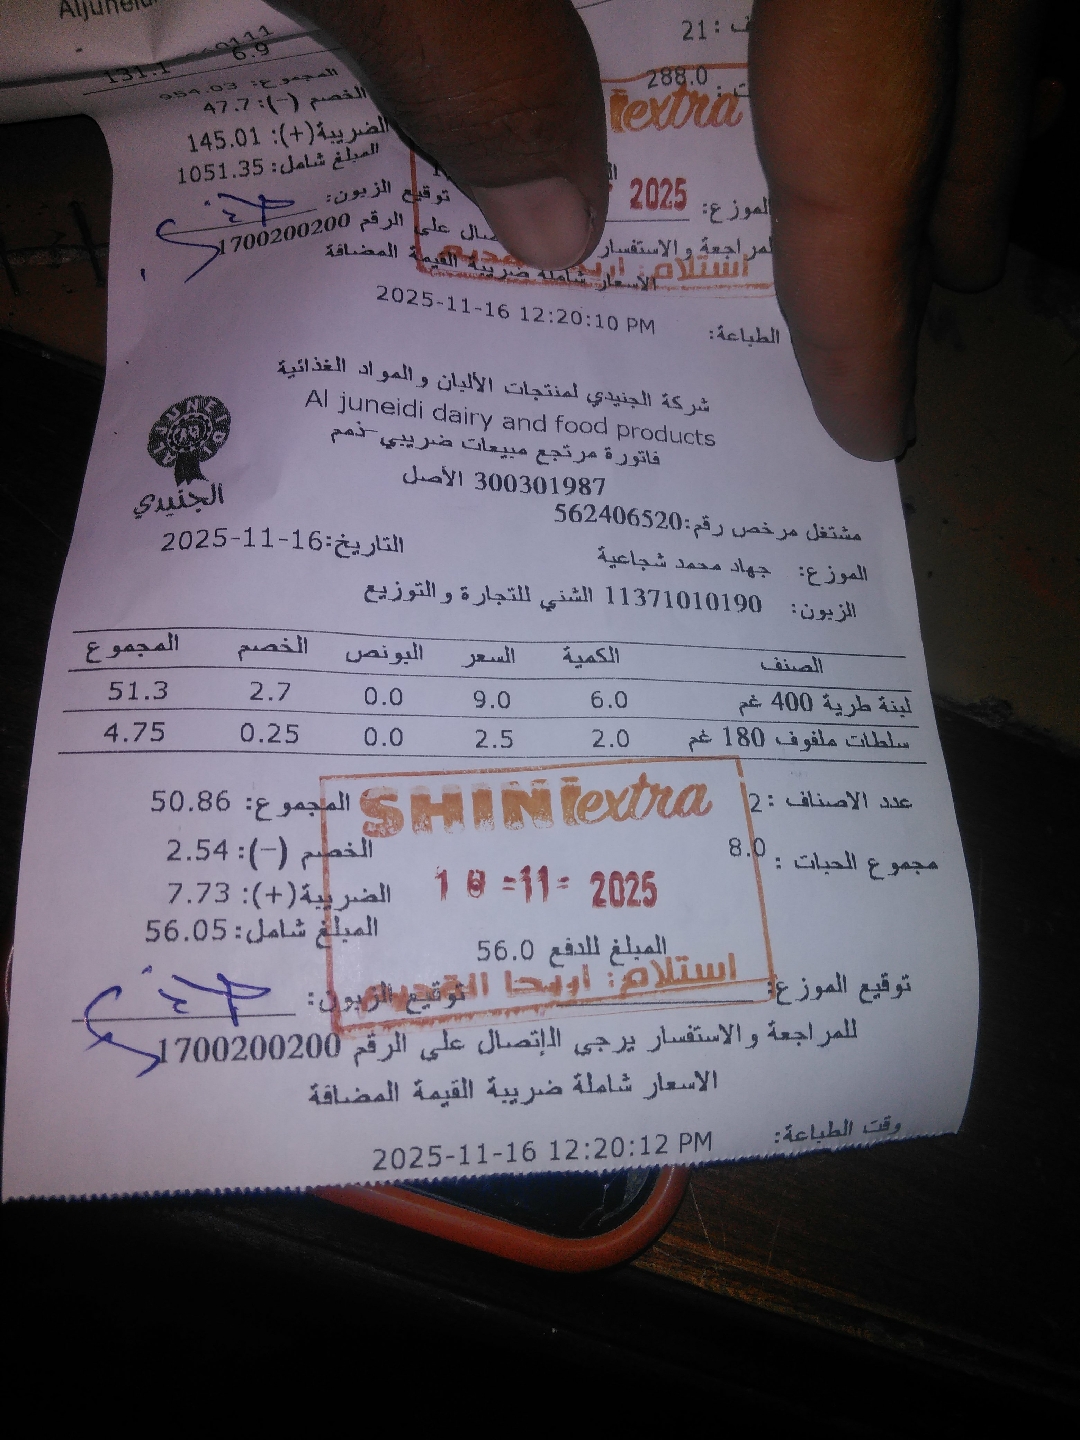 Aljuneidi
131.1 6.9
المجموع: 954.03
الخصم (-): 47.7
الضريبة(+): 145.01
المبلغ شامل: 1051.35
توقيع الزبون:
21
288.0
extra
2025
الموزع:
للمراجعة والاستفسار على الرقم 1700200200
استلام:
الاسعار شاملة ضريبة القيمة المضافة
الطباعة: 2025-11-16 12:20:10 PM
شركة الجنيدي لمنتجات الألبان والمواد الغذائية
Al juneidi dairy and food products
AL JUNEIDI
الجنيدي
فاتورة مرتجع مبيعات ضريبي-ذمم
300301987 الأصل
مشتغل مرخص رقم:562406520
التاريخ:2025-11-16
الموزع: جهاد محمد شجاعية
الزبون: 11371010190 الشني للتجارة والتوزيع
الصنف الكمية السعر البونص الخصم المجموع
لبنة طرية 400 غم 6.0 9.0 0.0 2.7 51.3
سلطات ملفوف 180 غم 2.0 2.5 0.0 0.25 4.75
عدد الاصناف : 2
المجموع: 50.86
SHINI extra
مجموع الحبات : 8.0
الخصم (-): 2.54
الضريبة(+): 7.73
-11- 2025
المبلغ شامل: 56.05
المبلغ للدفع 56.0
استلام: اريحا القديمة
توقيع الموزع:
توقيع الزبون:
للمراجعة والاستفسار يرجى الإتصال على الرقم 1700200200
الاسعار شاملة ضريبة القيمة المضافة
وقت الطباعة: 2025-11-16 12:20:12 PM